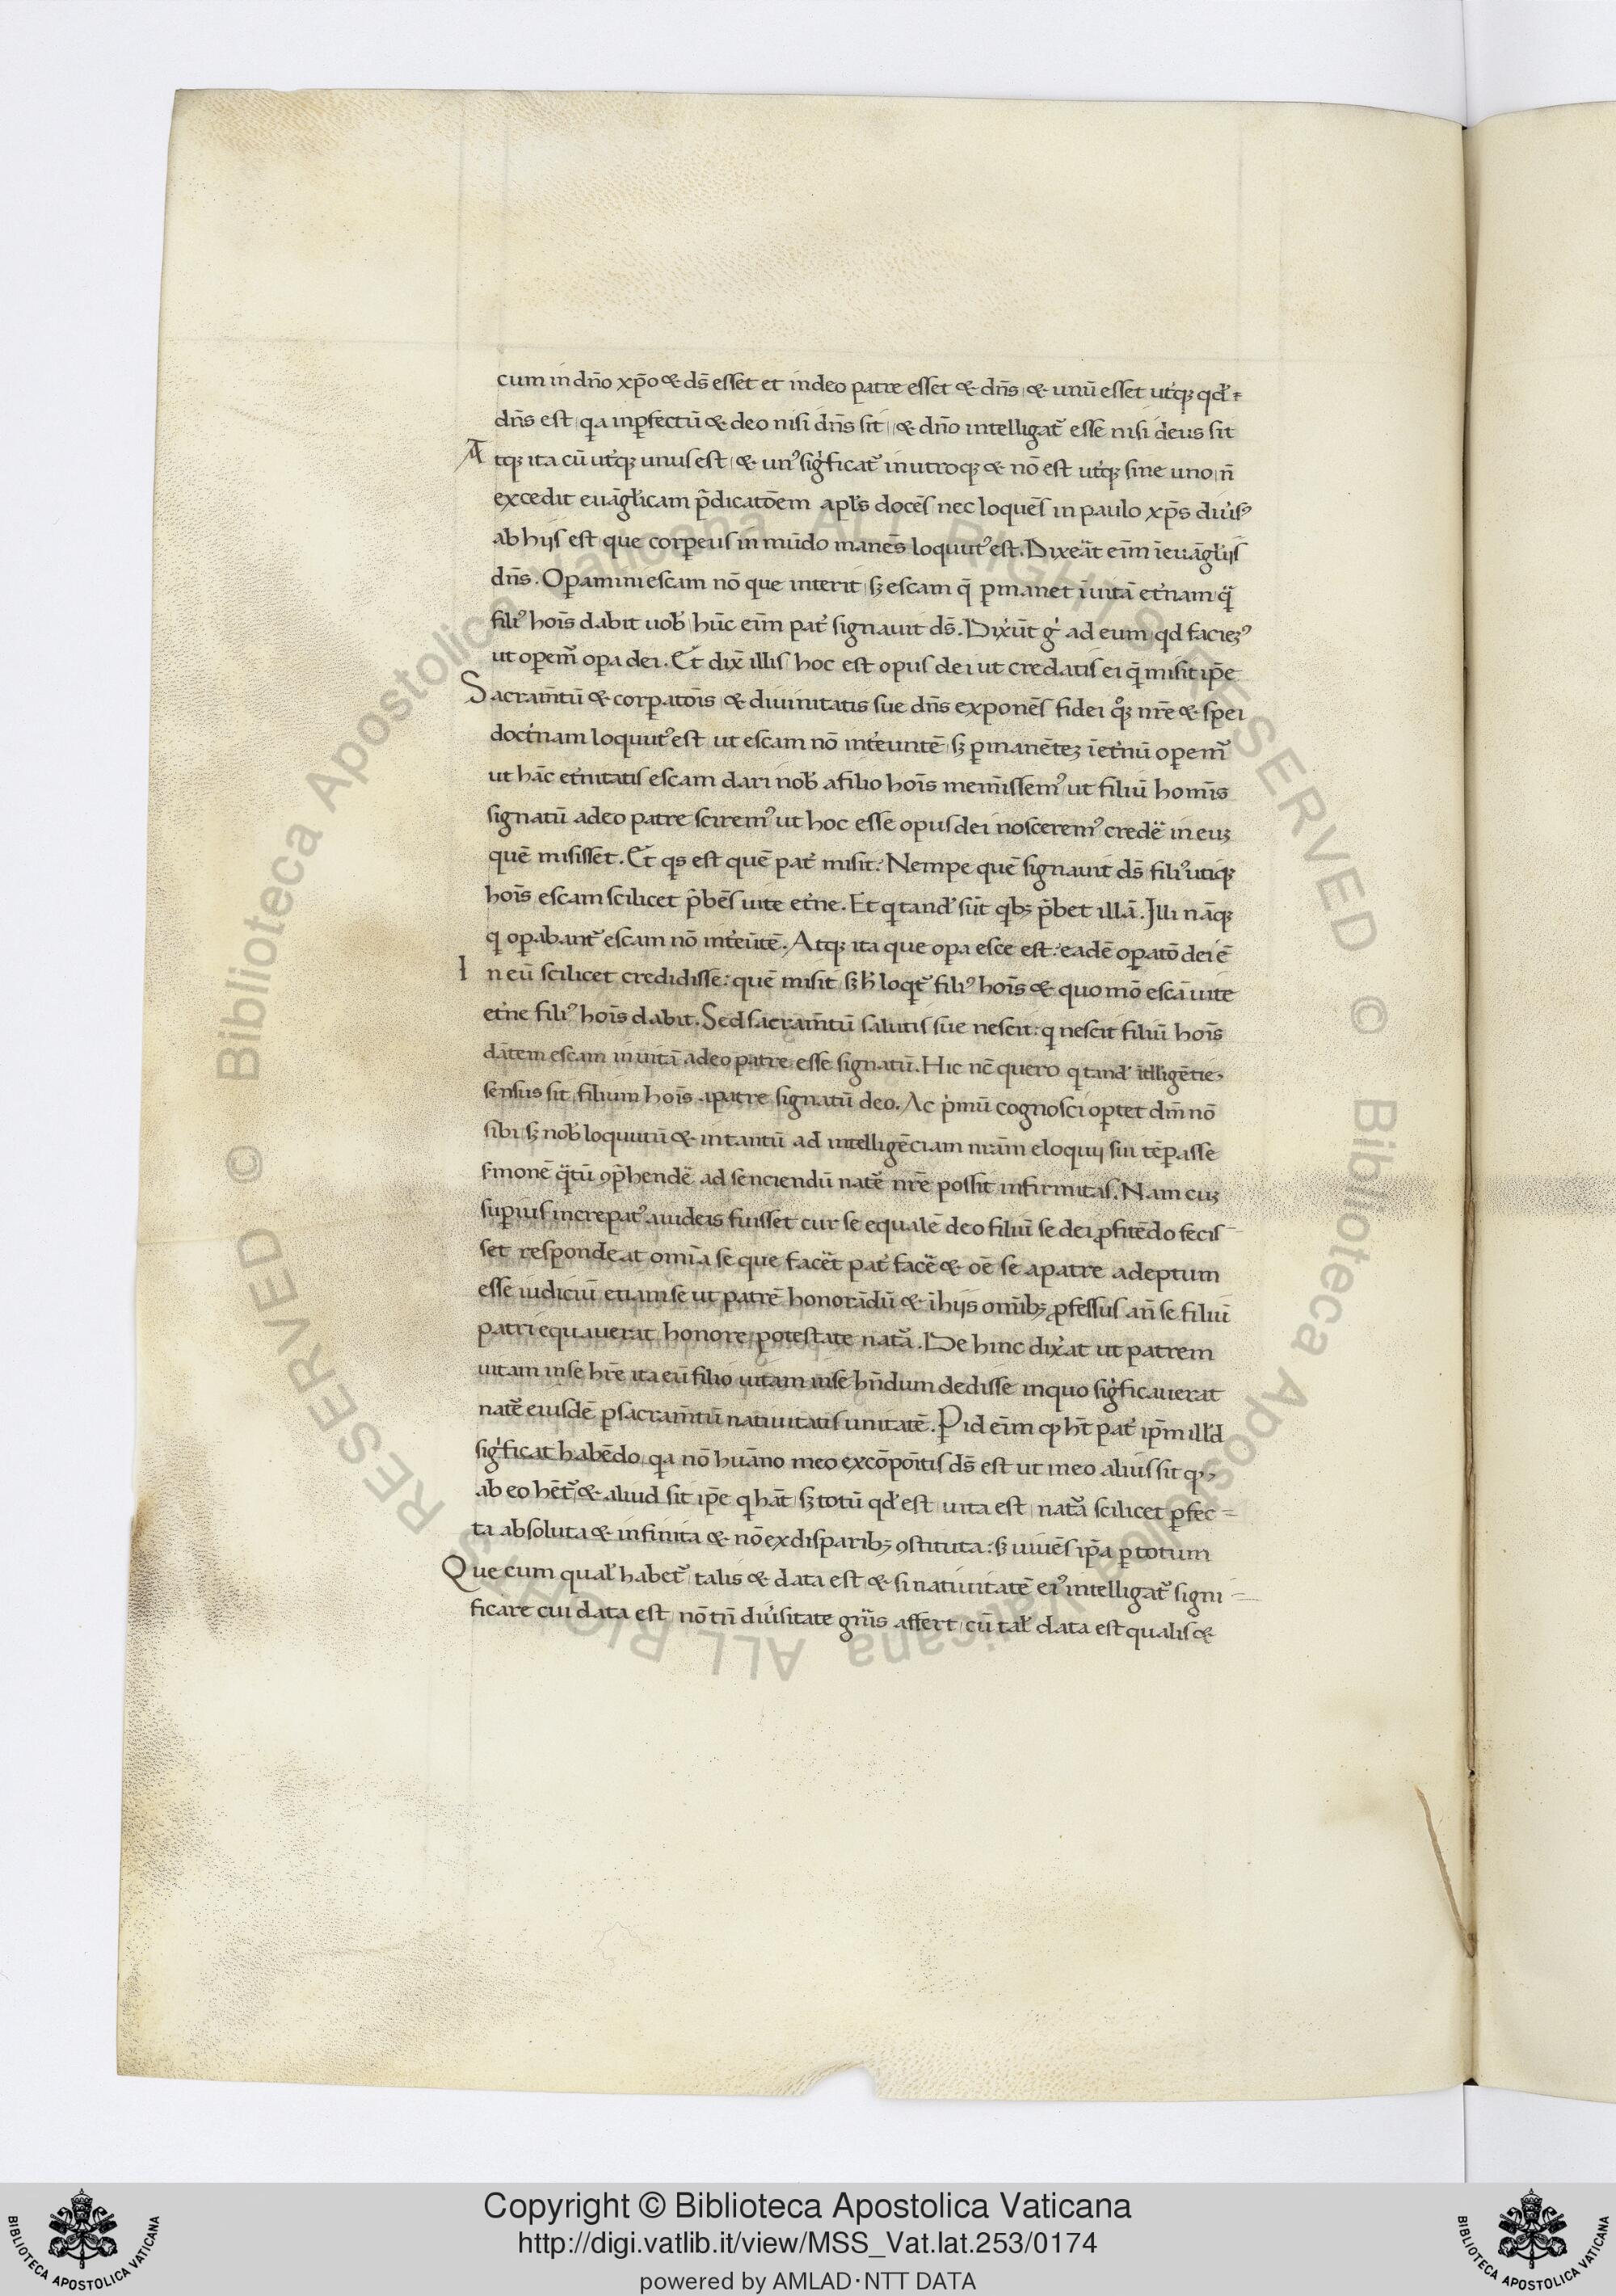 cum in dño xp̄o & ds̄ esset et in deo patre esset & dñs & unū esset utq̨ꝫ qđ
dñs est qa inp̱fectū & deo nisi dñs sit & dño intelligat᷑ esse nisi deus sit
Atqꝫ ita cū utq̨ꝫ unus est & unꝰ sigficat᷑ in utroqꝫ & nō est utq̨ꝫ sine uno n̄
excedit euāgłicam p̄dicatōem apłs docēs nec loquēs in paulo xp̄s diuisꝰ
ab hijs est que corꝑeus in mūdo manēs loquutꝰ est. Dixeāt eīm ī euāgłijs
dñs. Oꝑamini escam nō que interit sꝫ escam q̄ ꝑmanet ī uitā et'nam q̄
filiꝰ hoīs dabit uob' hūc eīm pat' signauit ds̄. Dix'ūt g' ad eum qd faciemꝰ
ut oꝑem᷑ oꝑa dei. Et dix̄ illis hoc est opus dei ut credatis ei q̄ misit ip̄e
Sacram̄tū & corꝑatōis & diuinitatis sue dñs exponēs fidei qꝫ nr̄e & spei
doct'nam loquutꝰ est ut escam nō int'euntē sꝫ ꝑmanēteꝫ ī et'nū oꝑem᷑
ut hāc et'nitatis escam dari nob' a filio hoīs memīssemꝰ ut filiū homīs
signatū a deo patre sciremꝰ ut hoc esse opus dei nosceremꝰ cred'e in euꝫ
quē misisset. Et qs est quē pat' misit. Nempe quē signauit ds̄ filiꝰ utiqꝫ
hoīs escam scilicet p̄bēs uite et'ne. Et q tand' sūt qbꝫ p̄bet illā. Illi nāqꝫ
q oꝑabant᷑ escam nō int'eūtē. Atqꝫ ita que oꝑa esce est: eadē oꝑatō dei ē
In eū scilicet credidisse: quē misit sꝫ h' loqt᷑ filiꝰ hoīs & quo mō escā uite
et'ne filiꝰ hoīs dabit. Sed sacram̄tū salutis sue nescit: q nescit filiū hoīs
dātem escam in uitā a deo patre esse signatū. Hic nc̄ quero q tand' ītłligētie
sensus sit filium hoīs a patre signatū deo. Ac p'mū cognosci oꝑtet dm̄ nō
sibi sꝫ nob' loquutū & in tantū ad intelligēciam nrām eloquij sui tēꝑasse
s'monē q̄tū ꝯp̄hend'e ad senciendū nat'e nr̄e possit infirmitas. Nam cuꝫ
suꝑius increpatꝰ a iudeis fuisset cur se equalē deo filiū se dei ꝓfitēdo fecis-
set respondeat omīa se que fac'et pat' fac'e & oē se a patre adeptum
esse iudiciū etiam se ut patrē honorādū & ī hijs omībꝫ ꝓfessus an̄ se filiū
patri equauerat honore potestate nat'a. De hinc dix'at ut patrem
uitam in se hr̄e ita eū filio uitam in se hn̄dum dedisse in quo sigficauerat
nat'e eiusdē ꝑ sacram̄tū natiuitatis unitatē. P id eīm qꝫ ht̄ pat' ip̄m ill'd
sigficat habēdo qa nō huāno meo excōpōitis ds̄ est ut in eo aliuſ sit qꝫ
ab eo hēt᷑ & aliud sit ip̄e q hāt sꝫ totū qđ est uita est nat'a scilicet ꝑfec=
ta absoluta & infinita & nō ex disparibꝫ ꝯstituta: sꝫ uiuēs ip̄a ꝑ totum
Que cum qual' habet᷑ talis & data est & si natiuitatē eiꝰ intelligat᷑ signi=
ficare cui data est nō tn̄ diu'sitate gn̄is affert cū tal' data est qualis &
Copyright © Biblioteca Apostolica Vaticana
http://digi.vatlib.it/view/MSS_Vat.lat.253/0174
powered by AMLAD·NTT DATA